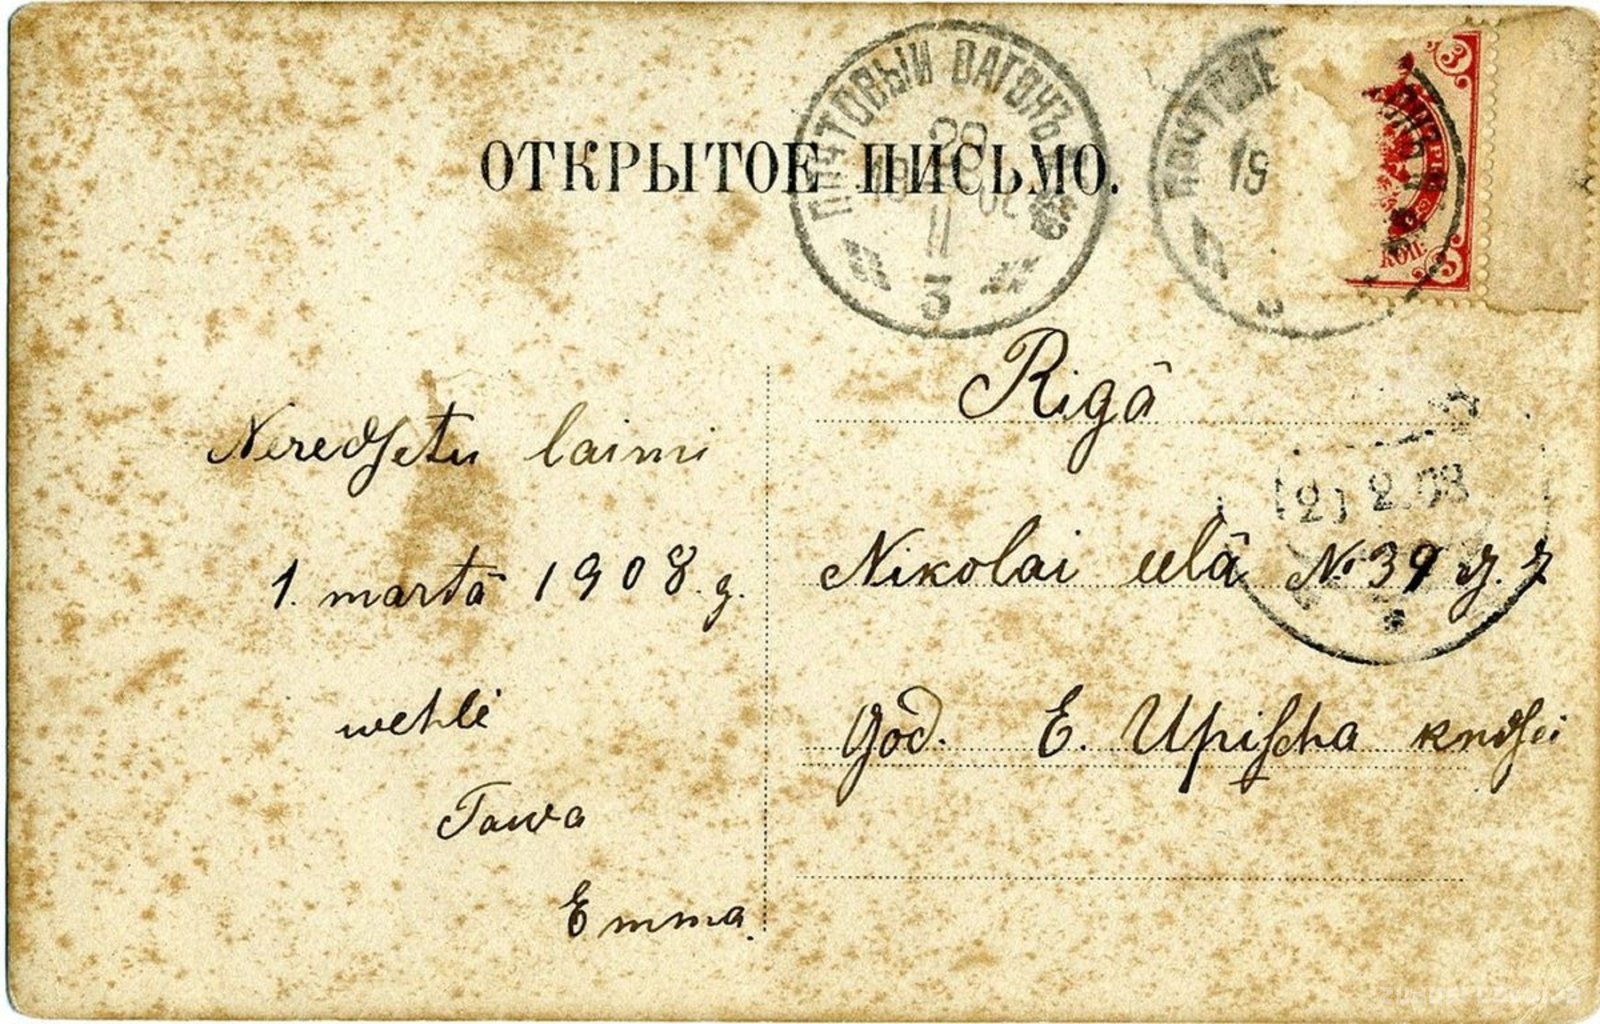 ОТКРЫТОЕ ПИСЬМО.
ПОЧТОВЫЙ ВАГОНЪ
20
19 08
II
3
ПОЧТОВЫЙ
19
3
КОП.
3
Neredsetu laimi
1. martā 1908. g.
wehlē
Tawa
Emma.
Rigâ
Nikolai eelâ № 39 dz. 7
God. E. Upischa kndsei
21 2.08